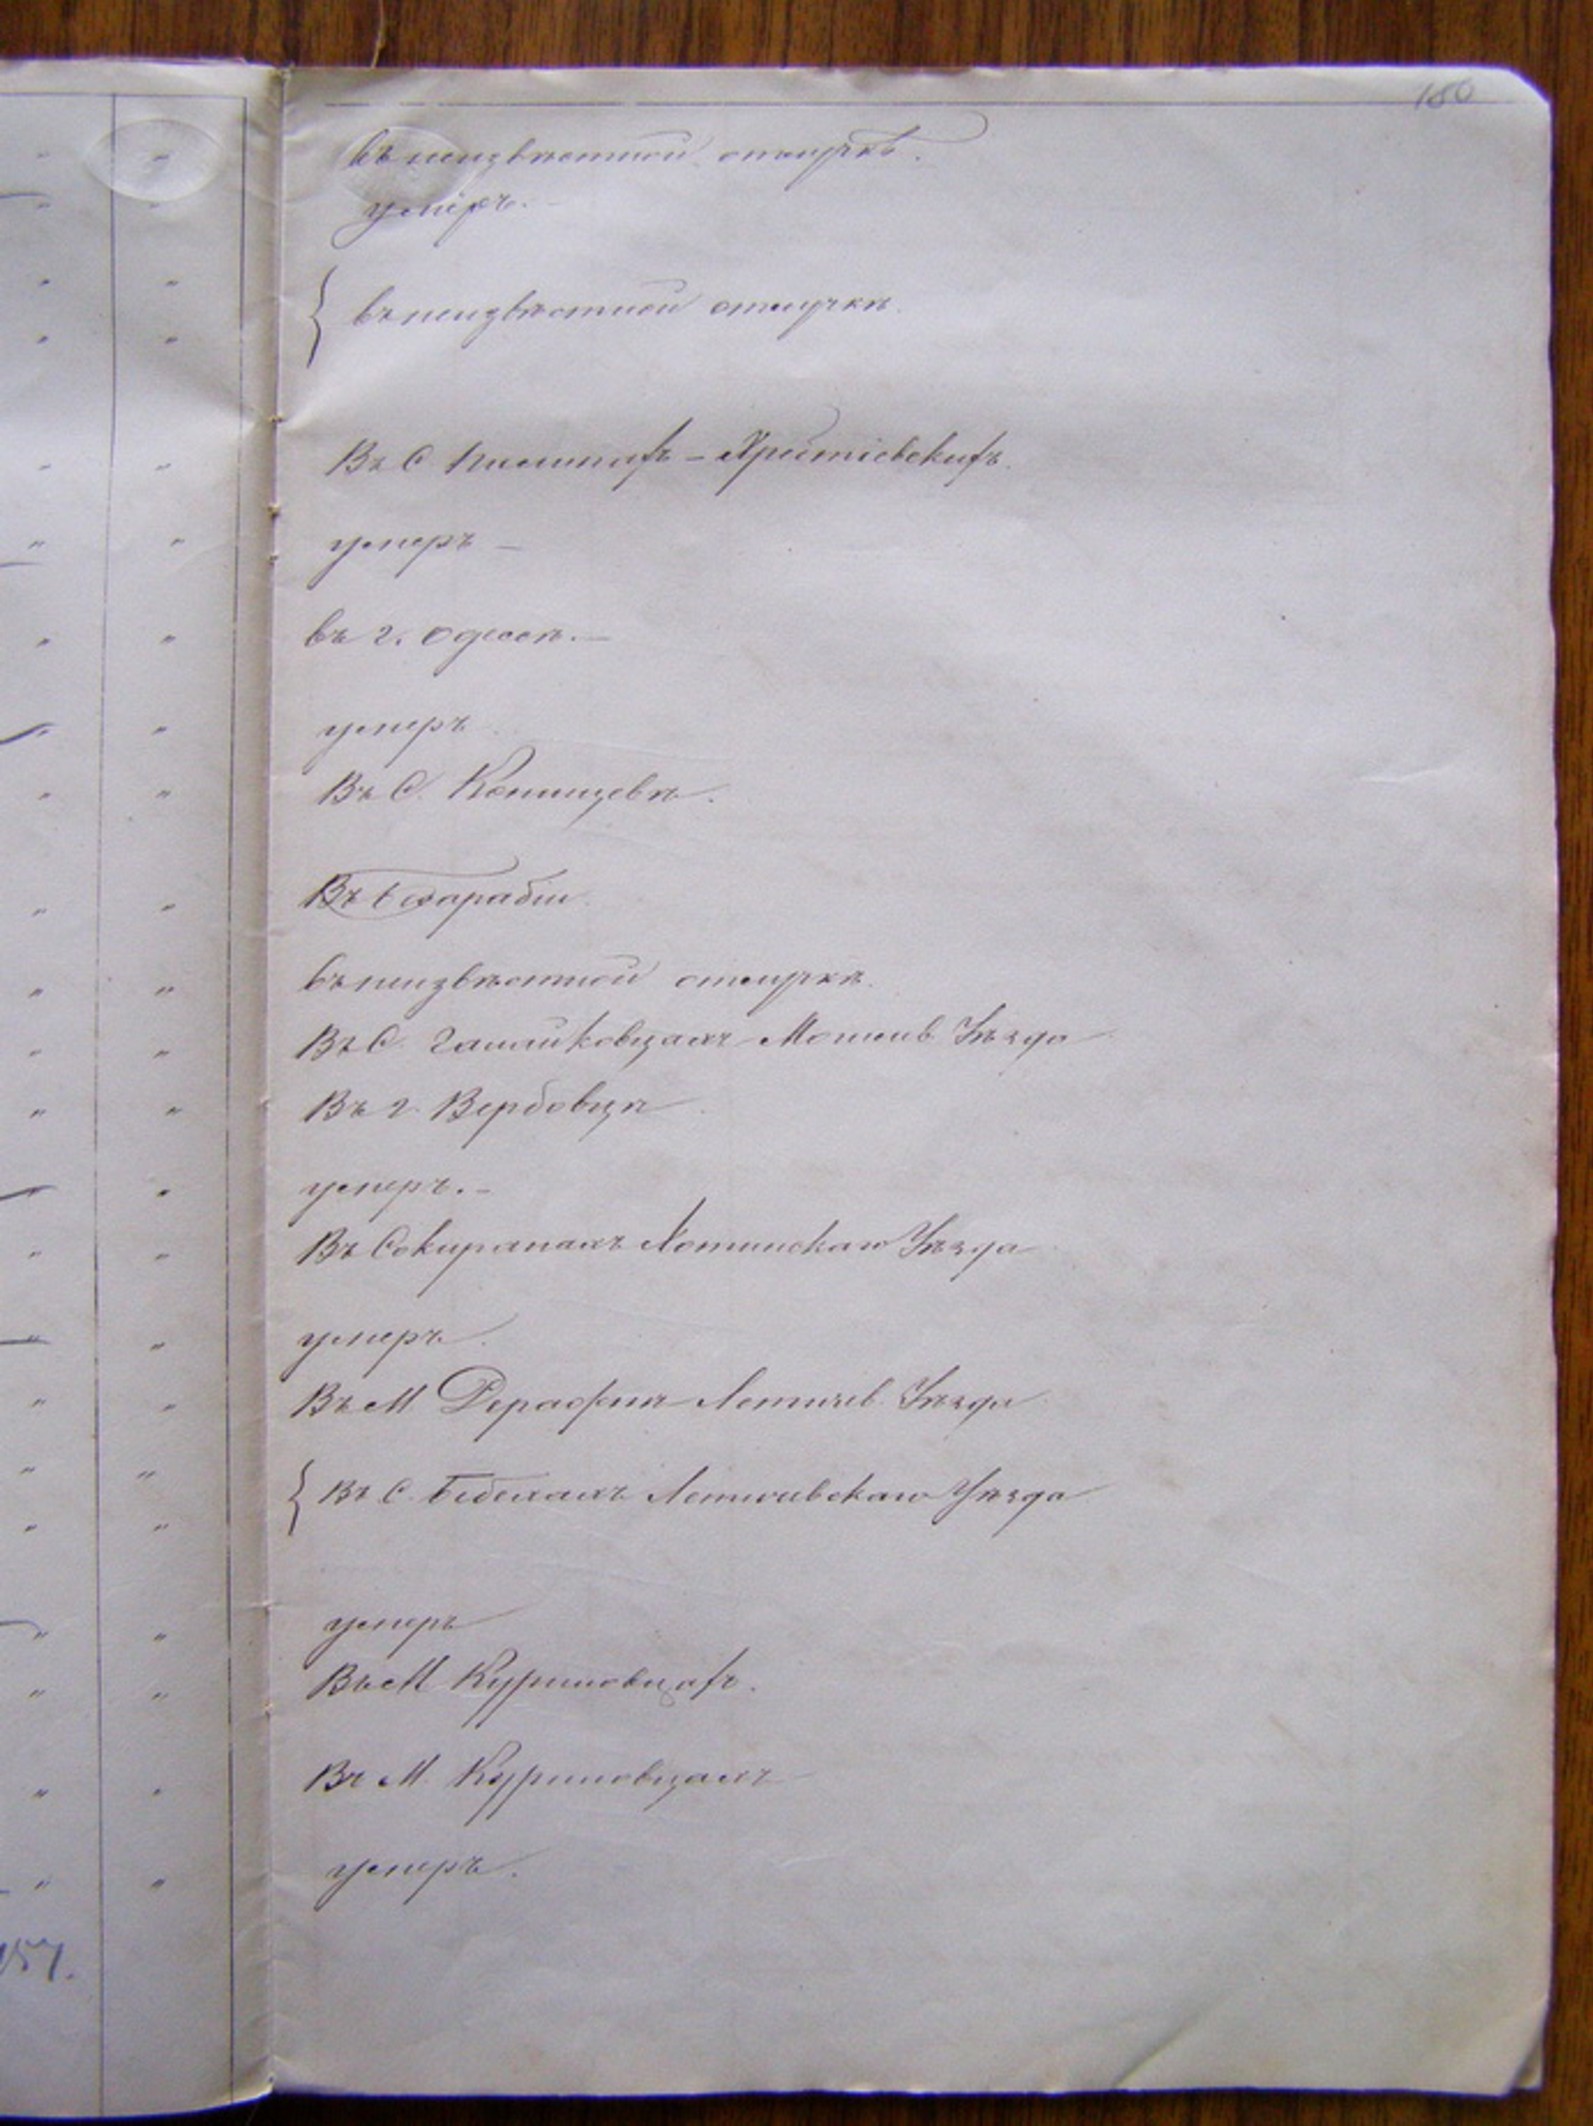 180
въ неизвѣстной отлучкѣ.
умеръ.
въ неизвѣстной отлучкѣ.
Въ С
умеръ
въ г. Одессѣ.
умеръ
Въ С. Конищевѣ.
Въ Бессарабіи
въ неизвѣстной отлучкѣ.
Въ С. Галайковцахъ Могилев. Уѣзда
Въ г. Вербовцѣ
умеръ.
Въ Сокирянахъ Хотинскаго Уѣзда
умеръ.
Въ М Деражнѣ Летичев. Уѣзда
Въ С. Бебехахъ Летичевскаго Уѣзда
умеръ
Въ М Куриловцахъ.
Въ М. Куриловцахъ
умеръ.
157.